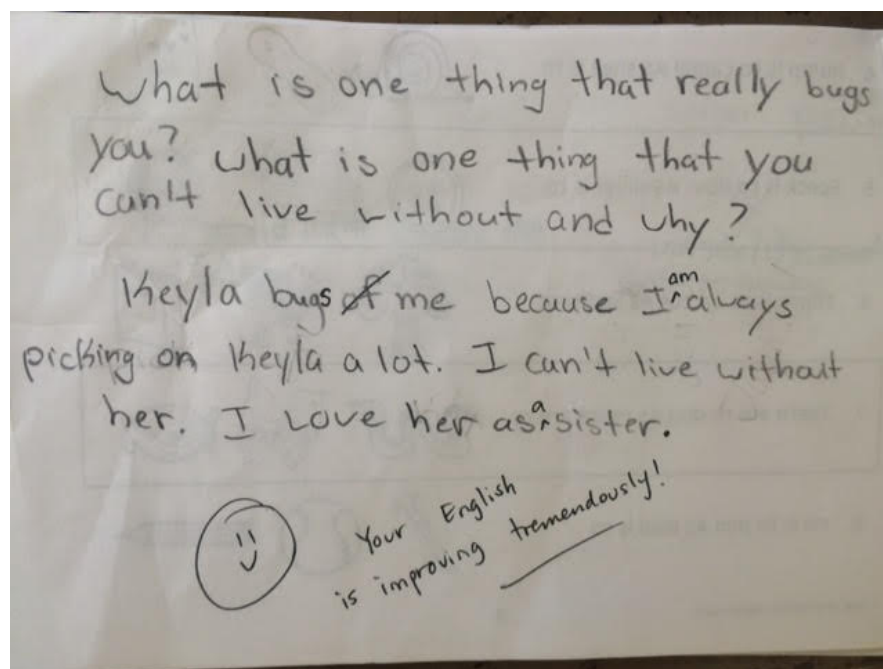 What is one thing that really bugs
you? What is one thing that you
can't live without and why?
Keyla bugs of me because I am always
picking on Keyla a lot. I can't live without
her. I Love her as a sister.
Your English
is improving tremendously!